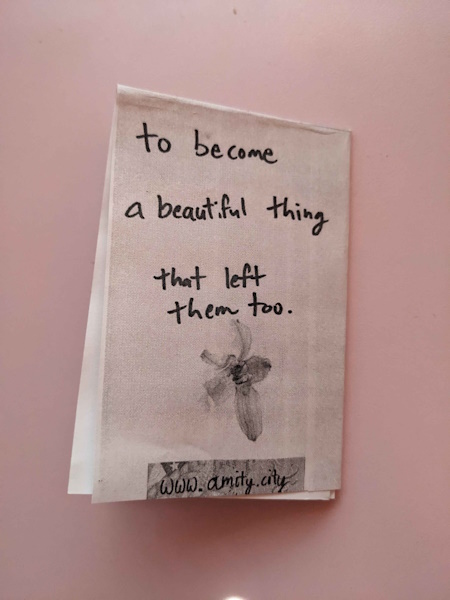 to become
a beautiful thing
that left
them too.
www.amity.city